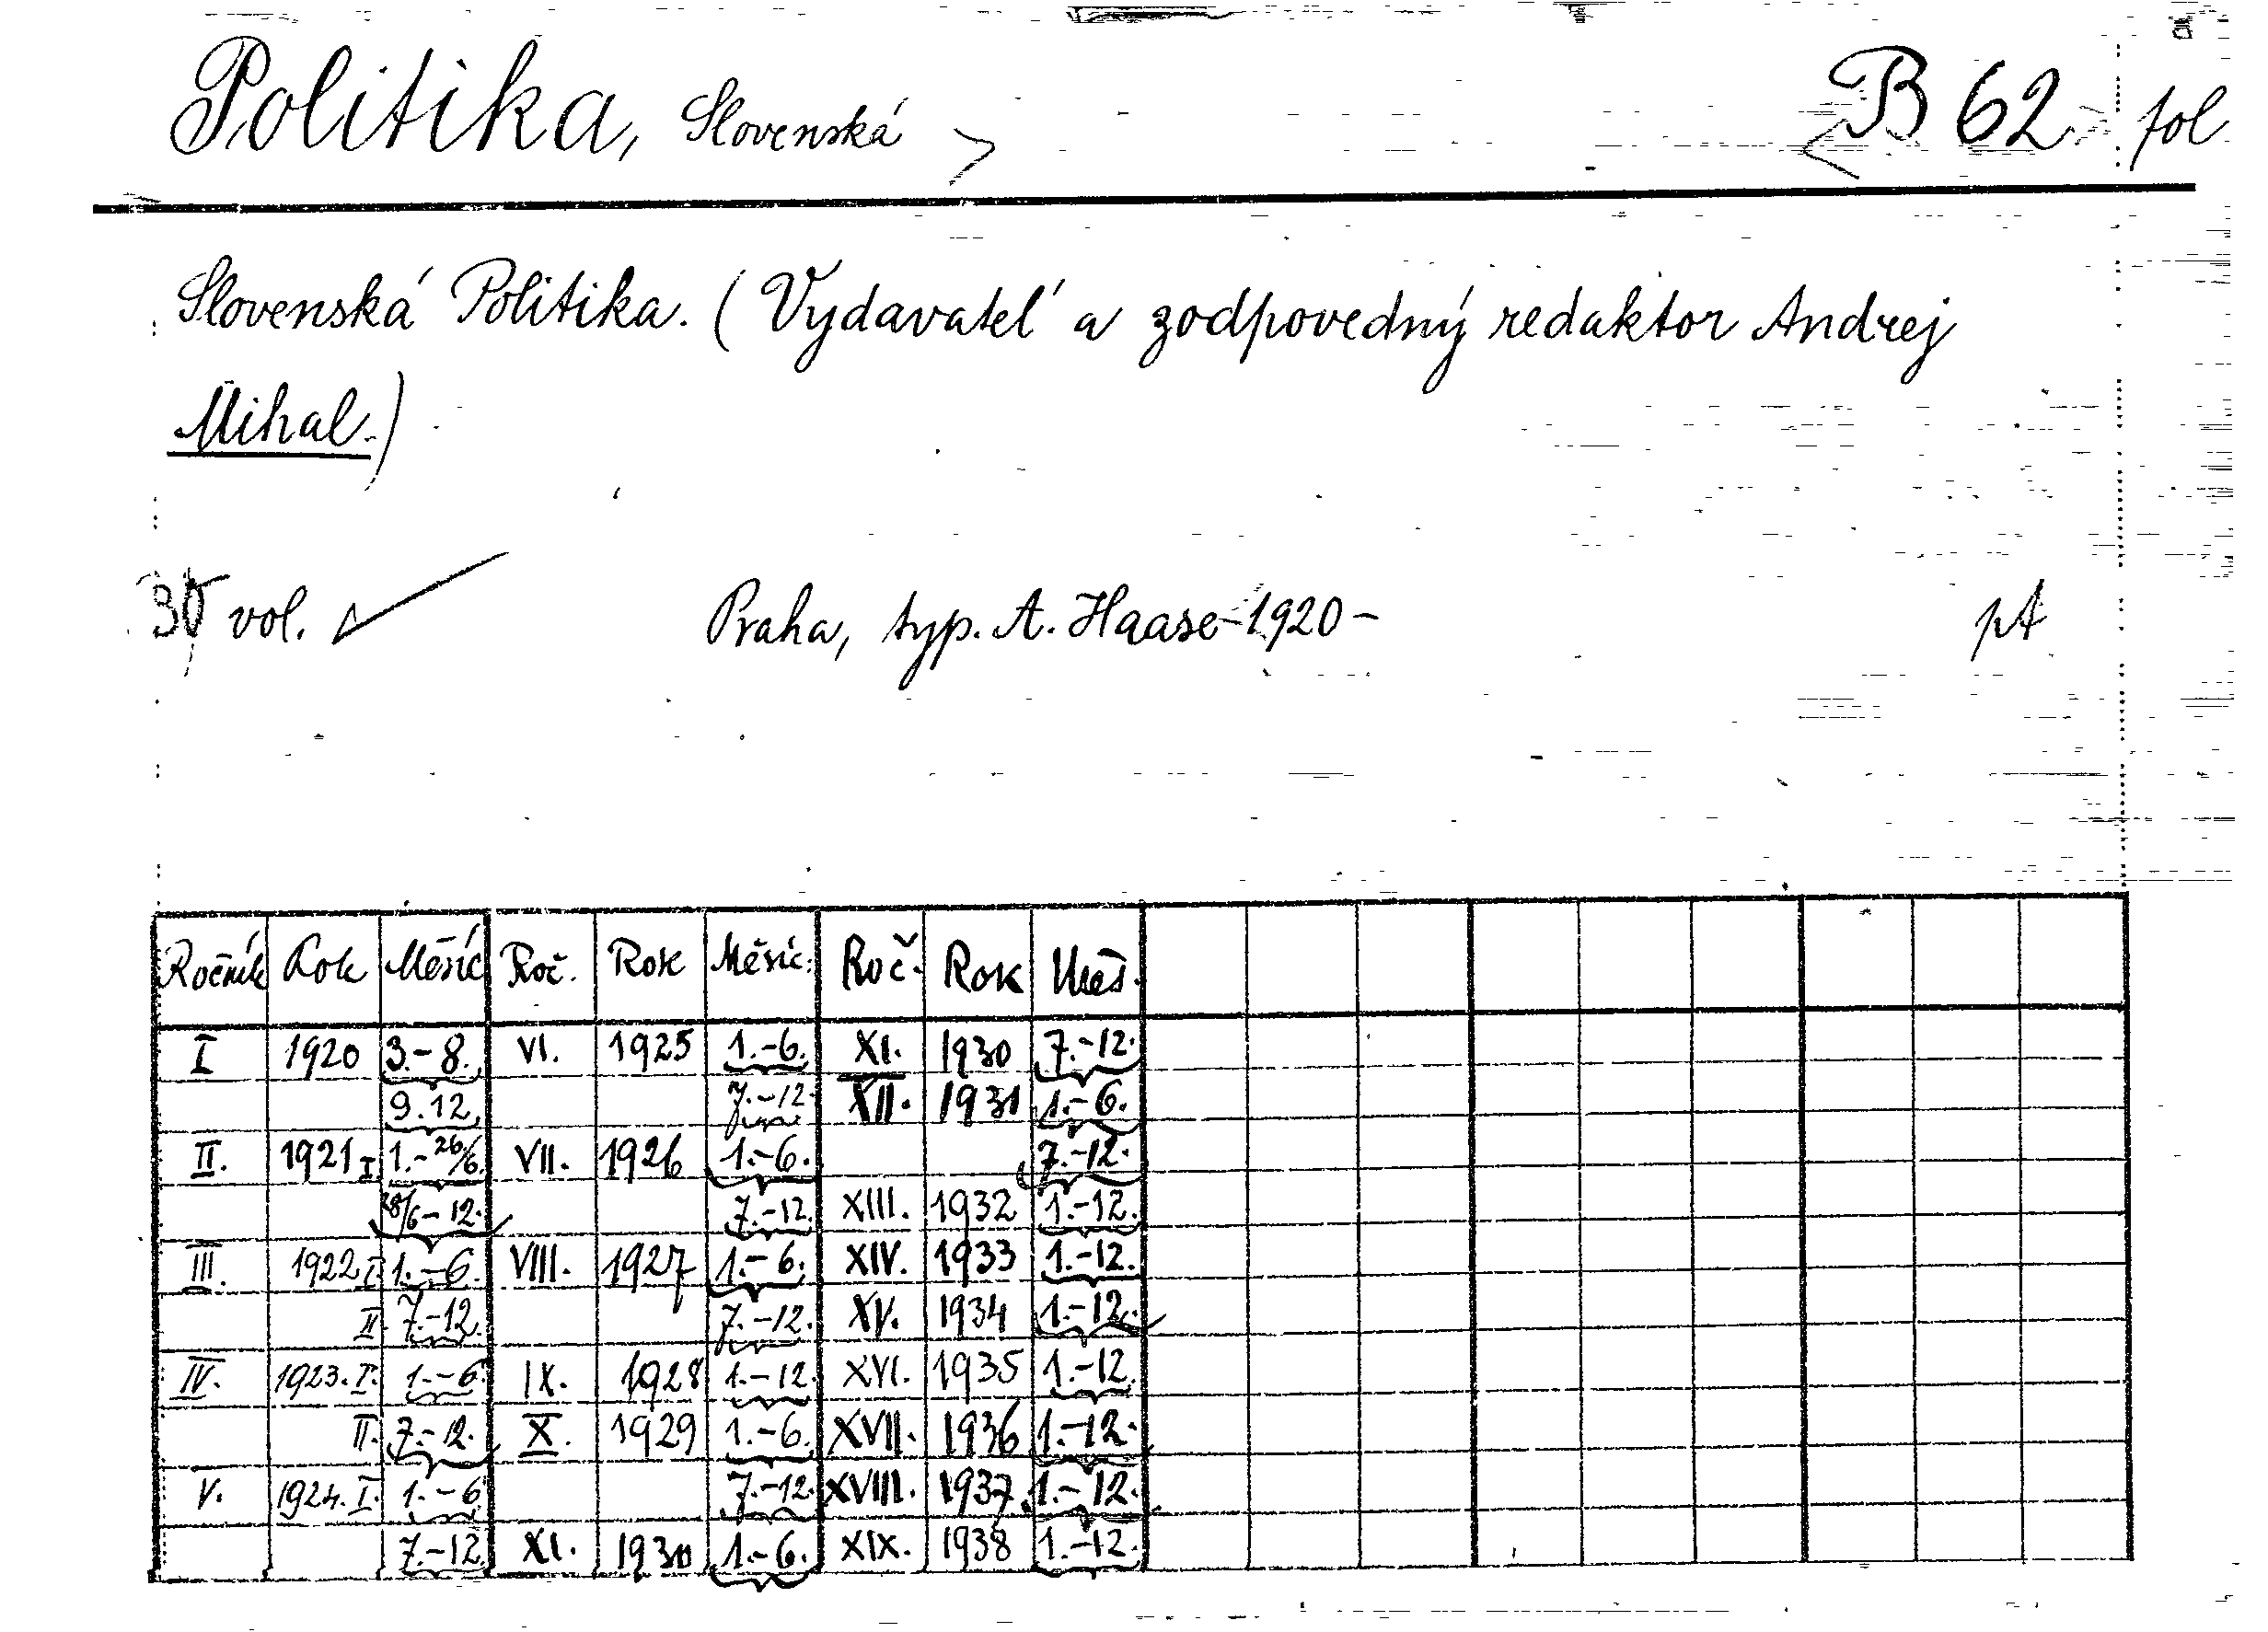 Politika, Slovenská B 62 fol
Slovenská Politika. (Vydavateľ a zodpovedný redaktor Andrej
Mihal.)
30 vol. Praha, typ. A. Haase 1920- pt
Ročník Rok Měsíc Roč. Rok Měsíc. Roč. Rok Měs.
I 1920 3.-8. VI. 1925 1.-6. XI. 1930 7.-12.
9.12. 7.-12. XII. 1931 1.-6.
II. 1921 I 1.-26/6. VII. 1926 1.-6. 7.-12.
28/6-12. 7.-12. XIII. 1932 1.-12.
III. 1922 I. 1.-6. VIII. 1927 1.-6. XIV. 1933 1.-12.
II. 7.-12. 7.-12. XV. 1934 1.-12.
IV. 1923. I. 1.-6. IX. 1928 1.-12. XVI. 1935 1.-12.
II. 7.-12. X. 1929 1.-6. XVII. 1936 1.-12.
V. 1924. I. 1.-6 7.-12. XVIII. 1937 1.-12.
7.-12. XI. 1930 1.-6. XIX. 1938 1.-12.